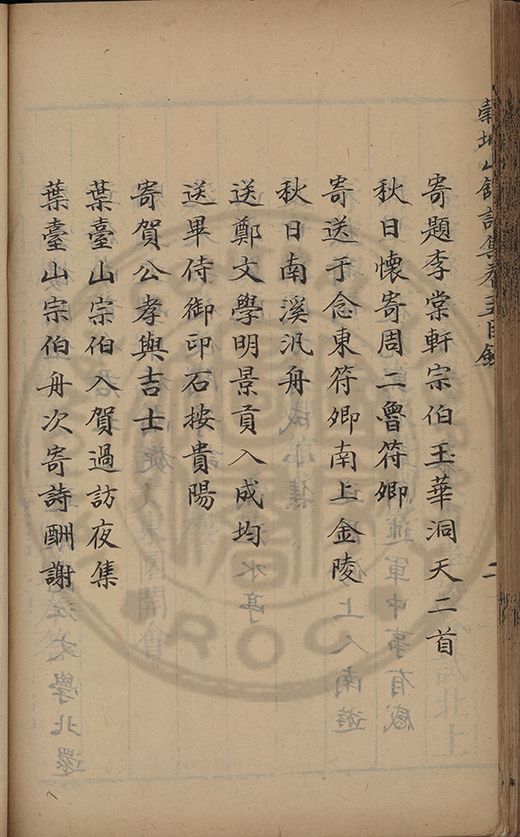 穀城山館詩集卷五目錄
二
寄題李棠軒宗伯玉華洞天二首
秋日懷寄周二魯符卿
寄送于念東符卿南上金陵
秋日南溪汎舟
送鄭文學明景貢入成均
送畢侍御印石按貴陽
寄賀公孝與吉士
葉臺山宗伯入賀過訪夜集
葉臺山宗伯舟次寄詩酬謝